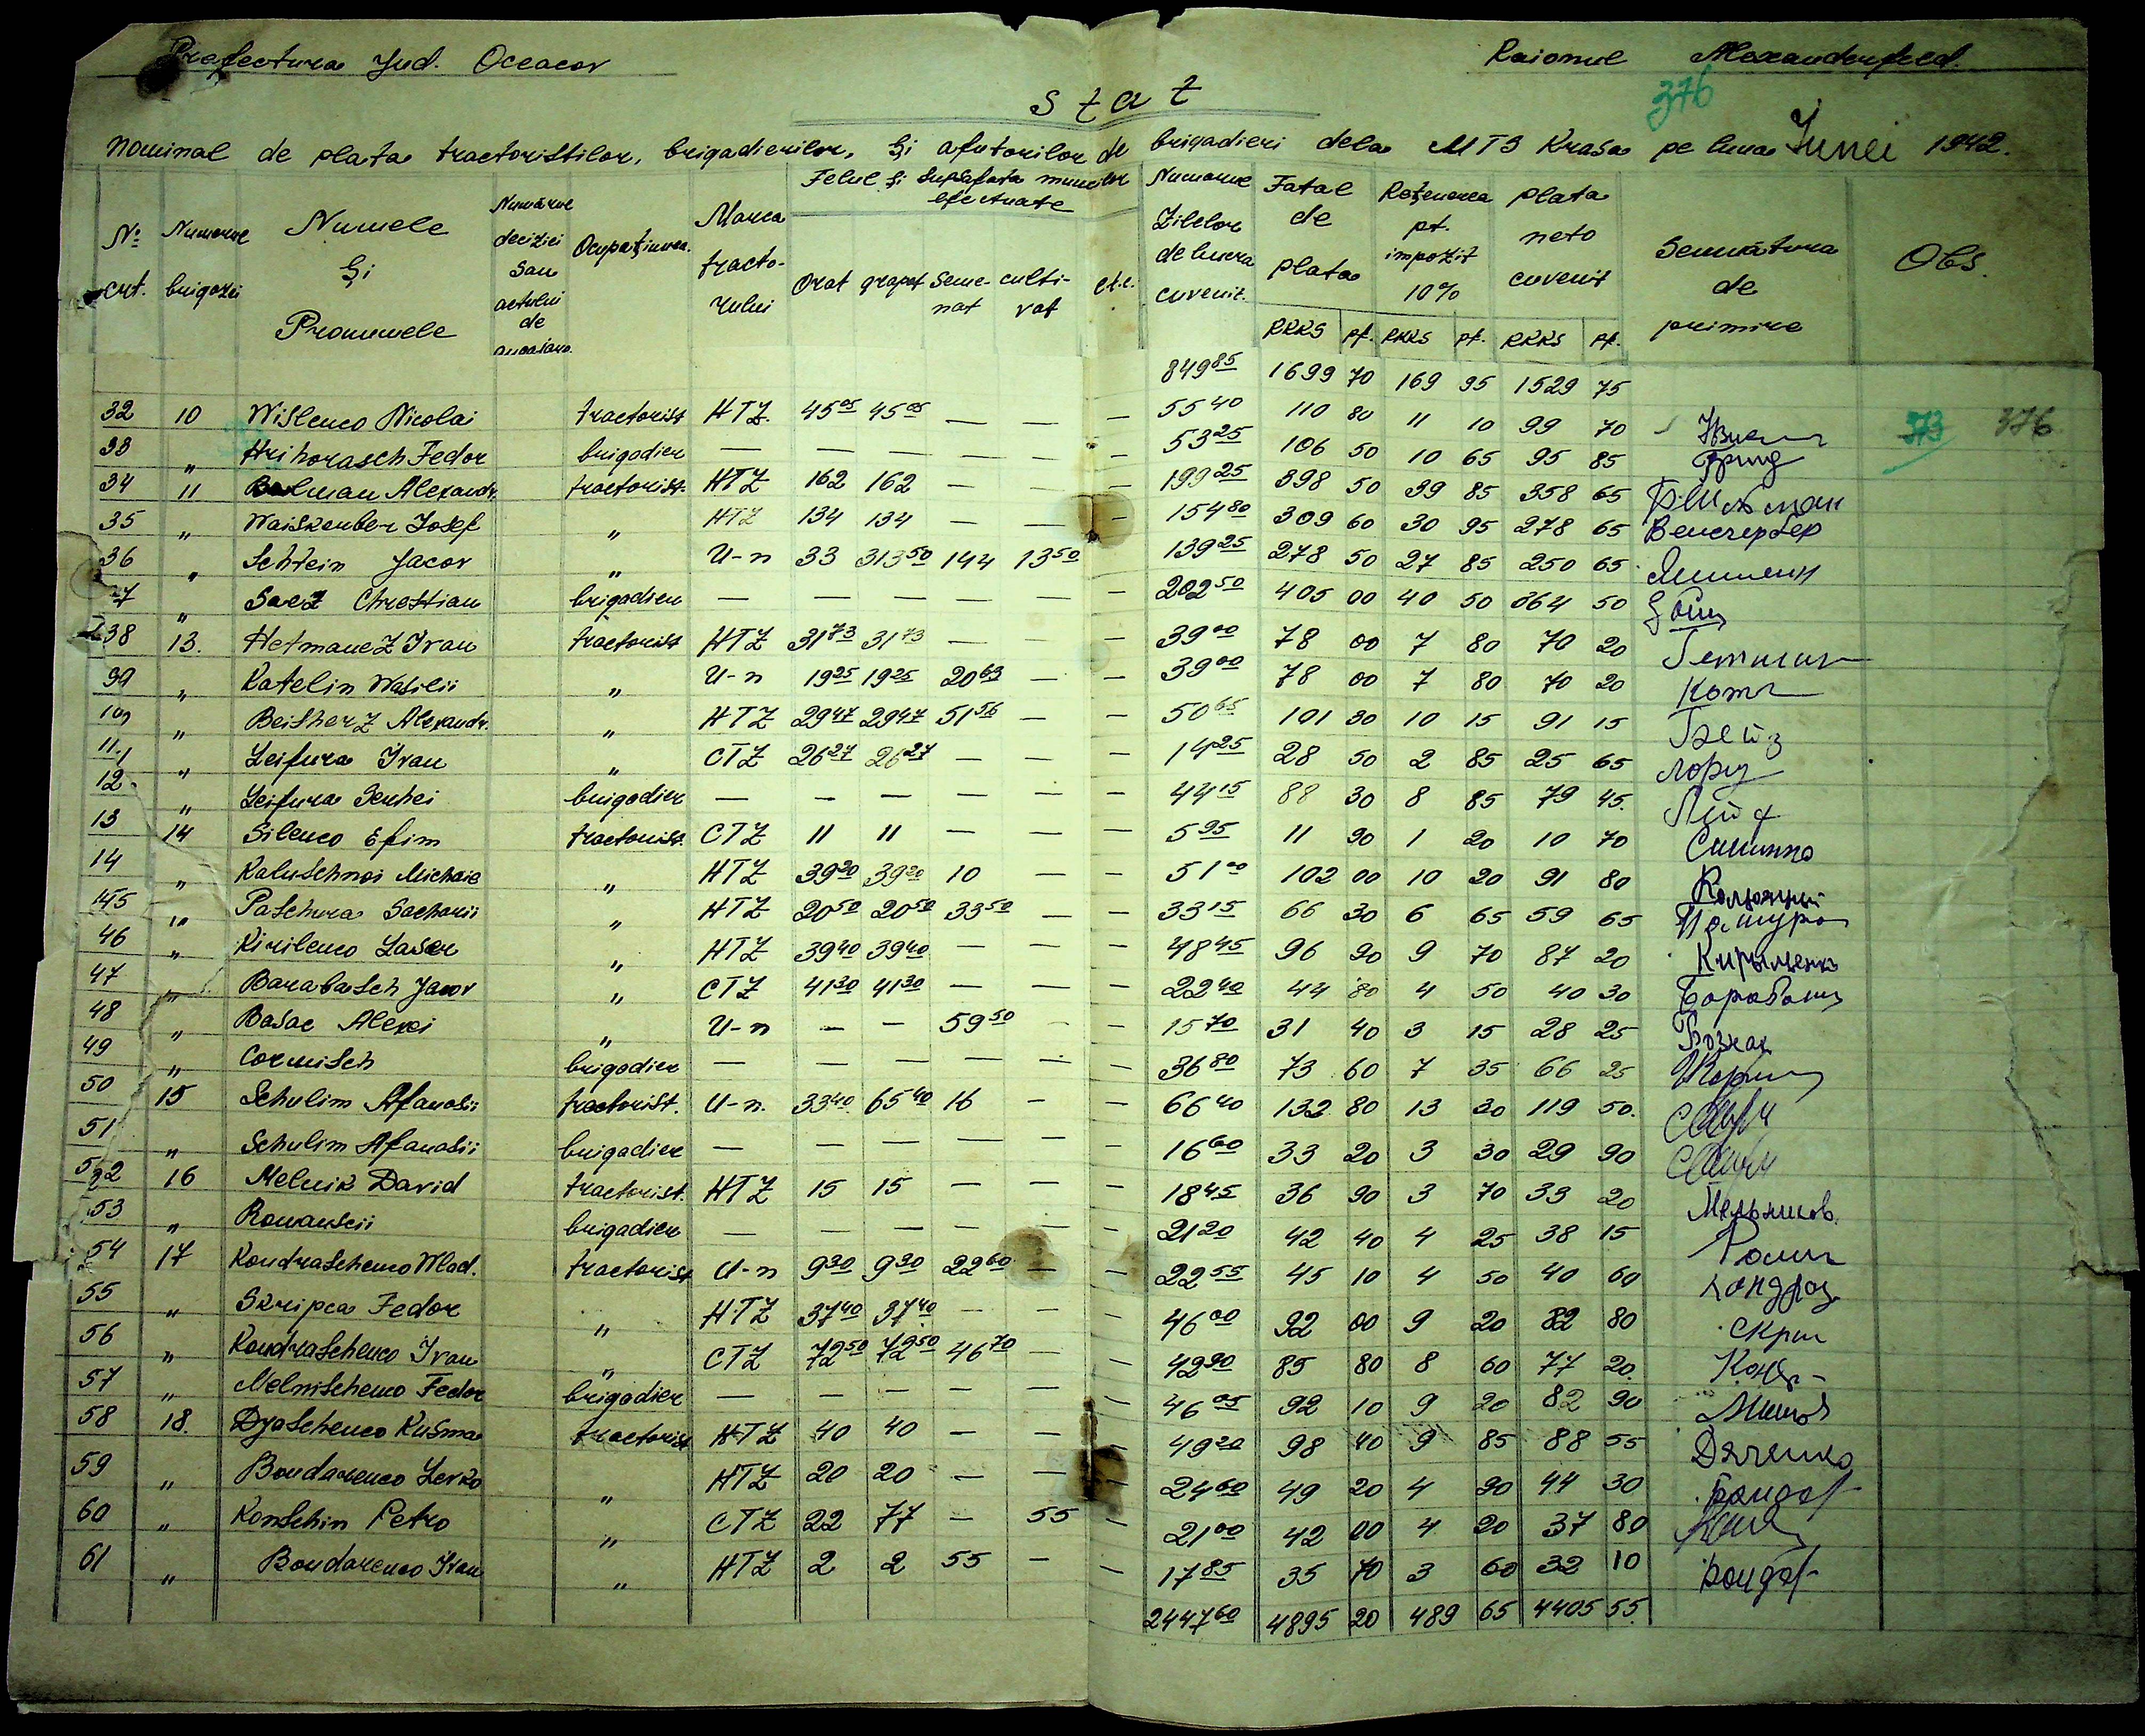 Prefectura Jud. Oceacov Raionul Alexanderfeld.
376
Stat
Nominal de plata tractoristilor, brigadierilor, și ajutorilor de brigadieri dela MTS Krasa pe luna Iunei 1942.
No crt. Numarul brigazei Numele și Pronumele Numărul deciziei sau actului de angajare Ocupațiunea. Marca tractorului Felul și suprafata muncilor efectuate Orat grapat Semenat cultivat et.c. Numarul Zilelor de lucru cuvenit. Total de plata Reținerea pt. impozit 10% plata neto cuvenit Semnătura de primire Obs.
RKKS pf. RKKS pf. RKKS pf.
849 85 1699 70 169 95 1529 75
32 10 Wislenco Nicolai tractorist HTZ. 45 05 45 05 — — — 55 40 110 80 11 10 99 70 373 376
33 " Hrihorasch Fedor brigadier — — — — — — 53 25 106 50 10 65 95 85
34 11 Bolman Alexandr. tractorist. HTZ 162 162 — — — 199 25 398 50 39 85 358 65
35 " Waiskerber Josef " HTZ 134 134 — — — 154 80 309 60 30 95 278 65 Венсгербер
36 " Schtein Jacov " U-n 33 313 50 144 13 50 139 25 278 50 27 85 250 65
37 " Saez Chrestian brigadier — — — — — — 202 50 405 00 40 50 364 50
38 13. Hetmanez Ivan tractorist HTZ 31 73 31 73 — — 39 00 78 00 7 80 70 20
39 " Katelin Wasilii " U-n 19 25 19 25 20 63 — — 39 00 78 00 7 80 70 20
10 " Beisherz Alexandr. " HTZ 29 47 29 47 51 56 — — 50 65 101 30 10 15 91 15 Бейз
11 " Leifura Ivan " CTZ 26 27 26 27 — — — 14 25 28 50 2 85 25 65
12 " Leifura Serhei brigadier — — — — — — 44 15 88 30 8 85 79 45.
13 14 Silenco Efim tractorist. CTZ 11 11 — — — 5 95 11 90 1 20 10 70
14 " Kaluschnoi Michail " HTZ 39 20 39 20 10 — — 51 00 102 00 10 20 91 80 Калюжный
145 " Paschura Sacharii " HTZ 20 50 20 50 33 50 — — 33 15 66 30 6 65 59 65 Пашура
46 " Kirilenco Lasar " HTZ 39 40 39 40 — — — 48 45 96 90 9 70 87 20 Кирыленко
47 " Barabasch Jacov " CTZ 41 30 41 30 — — — 22 40 44 80 4 50 40 30 Барабаш
48 " Basac Alexei " U-n — — 59 50 — — 15 70 31 40 3 15 28 25 Бозкак
49 " Cormisch brigadier — — — — — — 36 80 73 60 7 35 66 25
50 15 Schulim Afanasii tractorist. U-n. 33 40 65 40 16 — — 66 40 132 80 13 30 119 50.
51 " Schulim Afanasii brigadier — — — — — — 16 60 33 20 3 30 29 90
52 16 Melnik David tractorist. HTZ 15 15 — — — 18 45 36 90 3 70 33 20 Мельников.
53 " Romanscii brigadier — — — — — 21 20 42 40 4 25 38 15
54 17 Kondraschenco Wlad. tractorist U-n 9 30 9 30 22 60 — — 22 55 45 10 4 50 40 60 Кондращ
55 " Skripca Fedor " HTZ 37 40 37 40 — — — 46 00 92 00 9 20 82 80 Скрип
56 " Kondraschenco Ivan " CTZ 72 50 72 50 46 70 — — 42 90 85 80 8 60 77 20.
57 " Melnischenco Fedor brigadier — — — — — — 46 05 92 10 9 20 82 90
58 18. Djaschenco Kusma tractorist HTZ 40 40 — — — 49 20 98 40 9 85 88 55 Дяченко
59 " Bondarenco Levko " HTZ 20 20 — — — 24 60 49 20 4 90 44 30 Бондар
60 " Konschin Petro " CTZ 22 77 — 55 — 21 00 42 00 4 20 37 80
61 " Bondarenco Ivan " HTZ 2 2 55 — — 17 85 35 70 3 60 32 10 Бондар
2447 60 4895 20 489 65 4405 55.